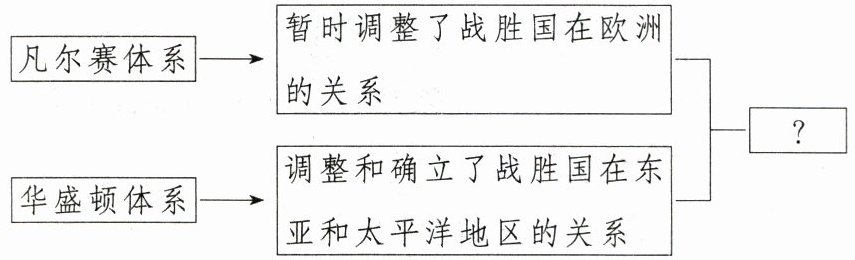 凡尔赛体系
暂时调整了战胜国在欧洲
的关系
?
华盛顿体系
调整和确立了战胜国在东
亚和太平洋地区的关系